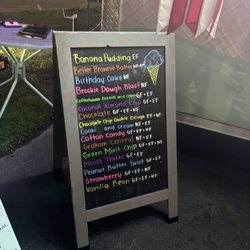 Banana Pudding EF
Better Brownie Batter NF
Birthday Cake NF
Brookie Dough Blast NF
Cottonhouse Cookies and Cream GF
Coconut Almond Chip GF + EF
Chocolate GF + EF + NF
Chocolate Chip Cookie Dough EF + NF
Cookies and Cream NF + EF
Cotton Candy GF + EF + NF
Graham Central NF + EF
Green Mint Chip GF + EF + NF
Moose Tracks GF + EF
Peanut Butter Twist GF + EF
Strawberry GF + EF + NF
Vanilla Bean GF + EF + NF